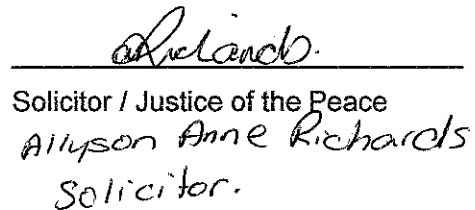 Solicitor / Justice of the Peace
Allyson Anne Richards
Solicitor.